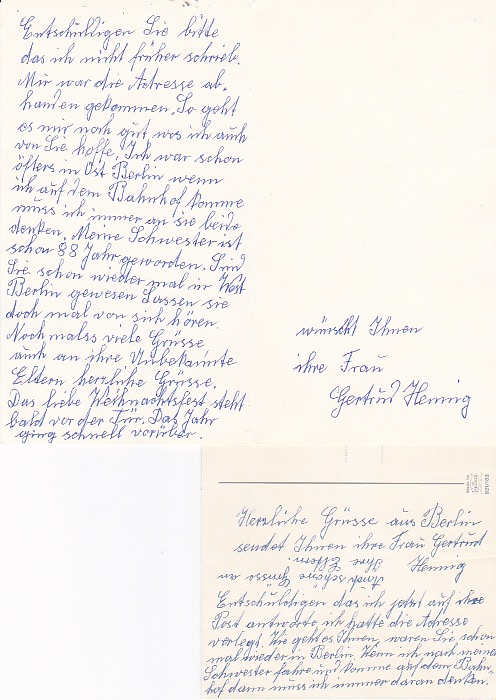 Entschuldigen Sie bitte
das ich nicht früher schrieb.
Mir war die Adresse ab-
handen gekommen. So geht
es mir noch gut, was ich auch
von Sie hoffe. Ich war schon
öfters in Ost Berlin wenn
ich auf dem Bahnhof komme
muss ich immer an sie beide
denken. Meine Schwester ist
schon 88 Jahr geworden. Sind
Sie schon wieder mal in West
Berlin gewesen Lassen sie
doch mal von sich hören.
Nochmalss viele Grüsse
auch an ihre Unbekannte
Eltern herzliche Grüsse.
Das liebe Weihnachtsfest steht
bald vor der Tür. Das Jahr
ging schnell vorüber.
wünscht Ihnen
ihre Frau
Gertrud Hennig
Herzliche Grüsse aus Berlin
sendet Ihnen ihre Frau Gertrud
Hennig
Auch schöne Grüsse an
Ihre Eltern.
Entschuldigen das ich jetzt auf ihre
Post antworte, ich hatte die Adresse
verlegt. Wie geht es Ihnen, waren Sie schon
mal wieder in Berlin. Wenn ich nach meiner
Schwester fahre und komme auf dem Bahn-
hof dann muss ich immer daran denken.